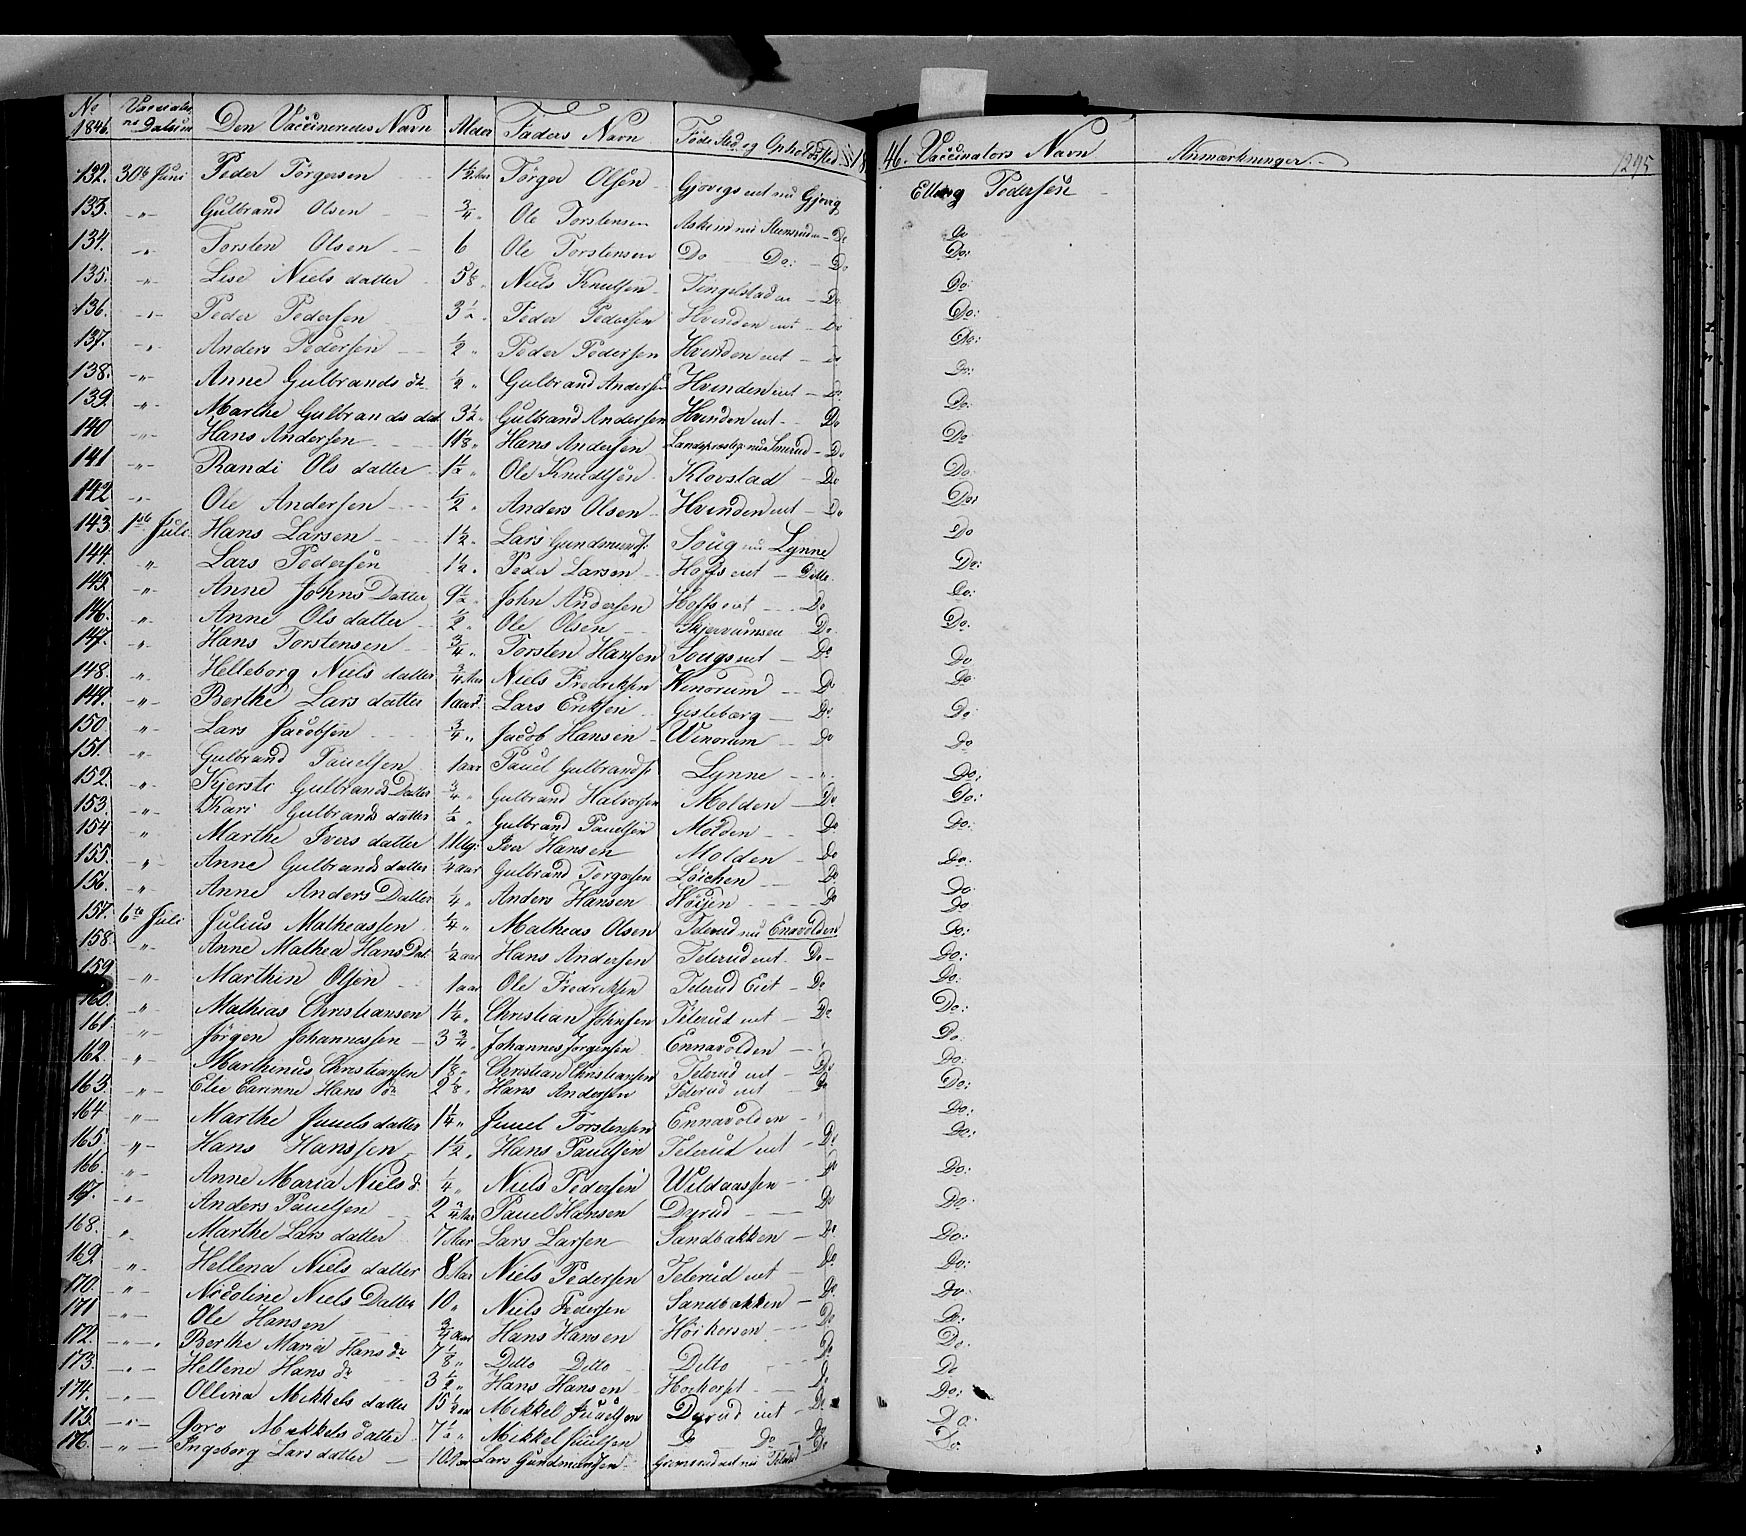 No 1846. Vaccinations Datum Den Vaccineredes Navn Alder Faders Navn Födested og Opholdssted i 1846. Vaccinators Navn Anmærkninger 1295
132. 30te Juni Peder Törgersen 1½ Aar Törger Olsen Gjövigs eiet nu Gjövig Elling Pedersen
133. -"- Gulbrand Olsen ¾ " Ole Torstensen Do Do
134. -"- Torsten Olsen 6 Ole Torstensen Do Do: Do Do:
135. -"- Lise Nielsdatter Niels Knudsen Tingelstad Do Do:
136. -"- Peder Pedersen 3½ " Peder Pedersen Hvinden eiet Do Do:
137. " Anders Pedersen ½ " Peder Pedersen Hvinden eiet Do Do:
138. -"- Anne Gulbrands dt. ½ " Gulbrand Andersen Hvinden eiet Do Do:
139. -"- Marthe Gulbrands dat 3½ " Gulbrand Andersen Hvinden eiet Do Do:
140 -"- Hans Andersen 1⅛ " Hans Andersen nu Smerud Do Do
141 -"- Randi Ols datter 1½ " Ole Knudtsen Klovstad Do Do:
142 -"- Ole Andersen ½ " Anders Olsen Hvinden eiet Do Do:
143 1ste Juli Hans Larsen 1½ " Lars Gundmunds: Soug nu Lynne Do
144. " Lars Pedersen 1½ " Peder Larsen Hoffs eiet Ditto Do:
145 -"- Anne Johns Datter 9½ " John Andersen Hoffs eiet Do Do:
146. -"- Anne Ols datter ½ " Ole Olsen Do Do:
147. " Hans Torstensen ¾ " Torsten Hansen Sougs eiet Do Do
148. " Helleborg Niels datter ¾ Aar Niels Fredriksen Do Do
149. -"- Berthe Lars datter 1 aar Lars Eriksen Gisleberg Do Do
150 -"- Lars Jacobsen ¾ " Jacob Hansen Winorum Do Do
151. -"- Gulbrand Pauelsen 1 aar Pauel Gulbrands Lynne " Do:
152. -"- Kjersti Gulbrands Datter ¾ " Gulbrand Halvorsen Molden Do Do:
153. -"- Kari Gulbrands datter ½ " Gulbrand Pauelsen Molden Do Do:
154 " Marthe Ivers datter Iver Hansen Molden Do Do:
155. -"- Anne Gulbrands datter ¼ aar Gulbrand Torgersen Löichen Do Do
156. " Anne Anders Datter ¼ " Anders Hansen Do Do
157. 6te Juli Julius Matheassen ¼ " Matheas Olsen Telerud nu Ennavolden Do:
158. -"- Anne Mathea Hans Dat ½ aar Hans Andersen Telerud eiet Do Do:
159. -"- Marthin Olsen 1 aar Ole Fredriksen Telerud Eiet Do Do:
160. " Mathias Christiansen 1¼ " Christian Johnsen Telerud eiet Do Do:
161. -"- Jörgen Johannessen 3¾ " Johannes Jörgensen Ennavolden " Do
162. " Marthinus Christiansen 1⅛ " Christian Christiansen Telerud eiet Do Do:
163. -"- Elie Carinne Hans Dr 2⅛ " Hans Andersen Telerud eiet Do Do:
164 -"- Marthe Juuels datter 1¼ " Juuel Torstensen Ennavolden " Do:
165. -"- Hans Hanssen 1½ " Hans Pauelsen Telerud eiet Do Do:
166. -"- Anne Maria Niels d. ¼ " Niels Pedersen Wildaassen Do Do:
167. -"- Anders Pauelsen Pauel Hansen Dyrud Do Do:
168. " Marthe Lars datter 7 Aar Lars Larsen Sandbakken Do Do:
169 -"- Hellena Niels datter 8 Aar Niels Pedersen Telerud eiet Do Do:
170. -"- Nicoline Niels Datter 10 " Niels Pedersen Sandbakken Do Do:
171 -"- Ole Hansen ¾ aar Hans Hansen Do Do:
172. -"- Berthe Maria Hans dr 7⅛ " Ditto Ditto Ditto Do Do:
173. -"- Hellene Hans dr 3½ " Hans Hansen Do Do
174. -"- Ollina Mikkels datter 15½ " Mikkel Juuelsen Dyrud eiet Do Do:
175 -"- Goro Mekkels datter 7½ " Mikkel Juuelsen Do Do Do Do:
176. -"- Ingeborg Lars datter 10 Aar Lars Gundmundsen nu Telerud Do Do: